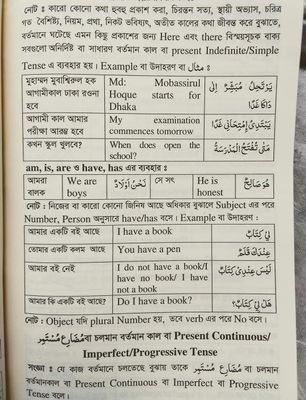 নোট : কারো কোনো কথা হুবহু প্রকাশ করা, চিরন্তন সত্য, স্থায়ী অভ্যাস, চরিত্র
গত বৈশিষ্ট্য, নিয়ম, প্রথা, নিকট ভবিষ্যৎ, অতীত কালের কথা জীবন্ত করে বুঝাতে,
বর্তমানে ঘটেছে এমন কিছু প্রকাশের জন্য Here এবং there বিস্ময়সূচক বাক্য
সবগুলো অনির্দিষ্ট বা সাধারণ বর্তমান কাল বা present Indefinite/Simple
Tense এ ব্যবহার হয়। Example বা উদাহরণ বা مثال :
মুহাম্মদ মুবাশ্বিরুল হক আগামীকাল ঢাকা রওনা হবে | Md: Mobassirul Hoque starts for Dhaka | يَرْتَحِلُ مُبَشِّرٌ إِلَى دَاكَا غَدًا
আগামী কাল আমার পরীক্ষা আরম্ভ হবে | My examination commences tomorrow | يَبْتَدِئُ اِمْتِحَانِي غَدًا
কখন স্কুল খুলবে? | When does open the school? | مَتَى تُفْتَحُ الْمَدْرَسَةُ
am, is, are ও have, has এর ব্যবহার :
আমরা বালক | We are boys | نَحْنُ أَوْلَادٌ | সে সৎ | He is honest | هُوَ صَالِحٌ
নোট : নিজের বা কারো কোনো জিনিষ আছে অধিকার বুঝালে Subject এর পরে
Number, Person অনুসারে have/has বসে। Example বা উদাহরণ :
আমার একটি বই আছে | I have a book | لِي كِتَابٌ
তোমার একটি কলম আছে | You have a pen | عِنْدَكَ قَلَمٌ
আমার বই নেই | I do not have a book/I have no book/ I have not a book | لَيْسَ عِنْدِي كِتَابٌ
আমার কি একটি বই আছে? | Do I have a book? | هَلْ لِي كِتَابٌ؟
নোট : Object যদি plural Number হয়, তবে verb এর পরে No বসে।
مُضَارِع مُسْتَمِر বা চলমান বর্তমান কাল বা Present Continuous/
Imperfect/Progressive Tense
সংজ্ঞা : যে কাজ বর্তমানে চলতেছে বুঝায় তাকে مُضَارِع مُسْتَمِر বা চলমান
বর্তমানকাল বা Present Continuous বা Imperfect বা Progressive
Tense বলে।